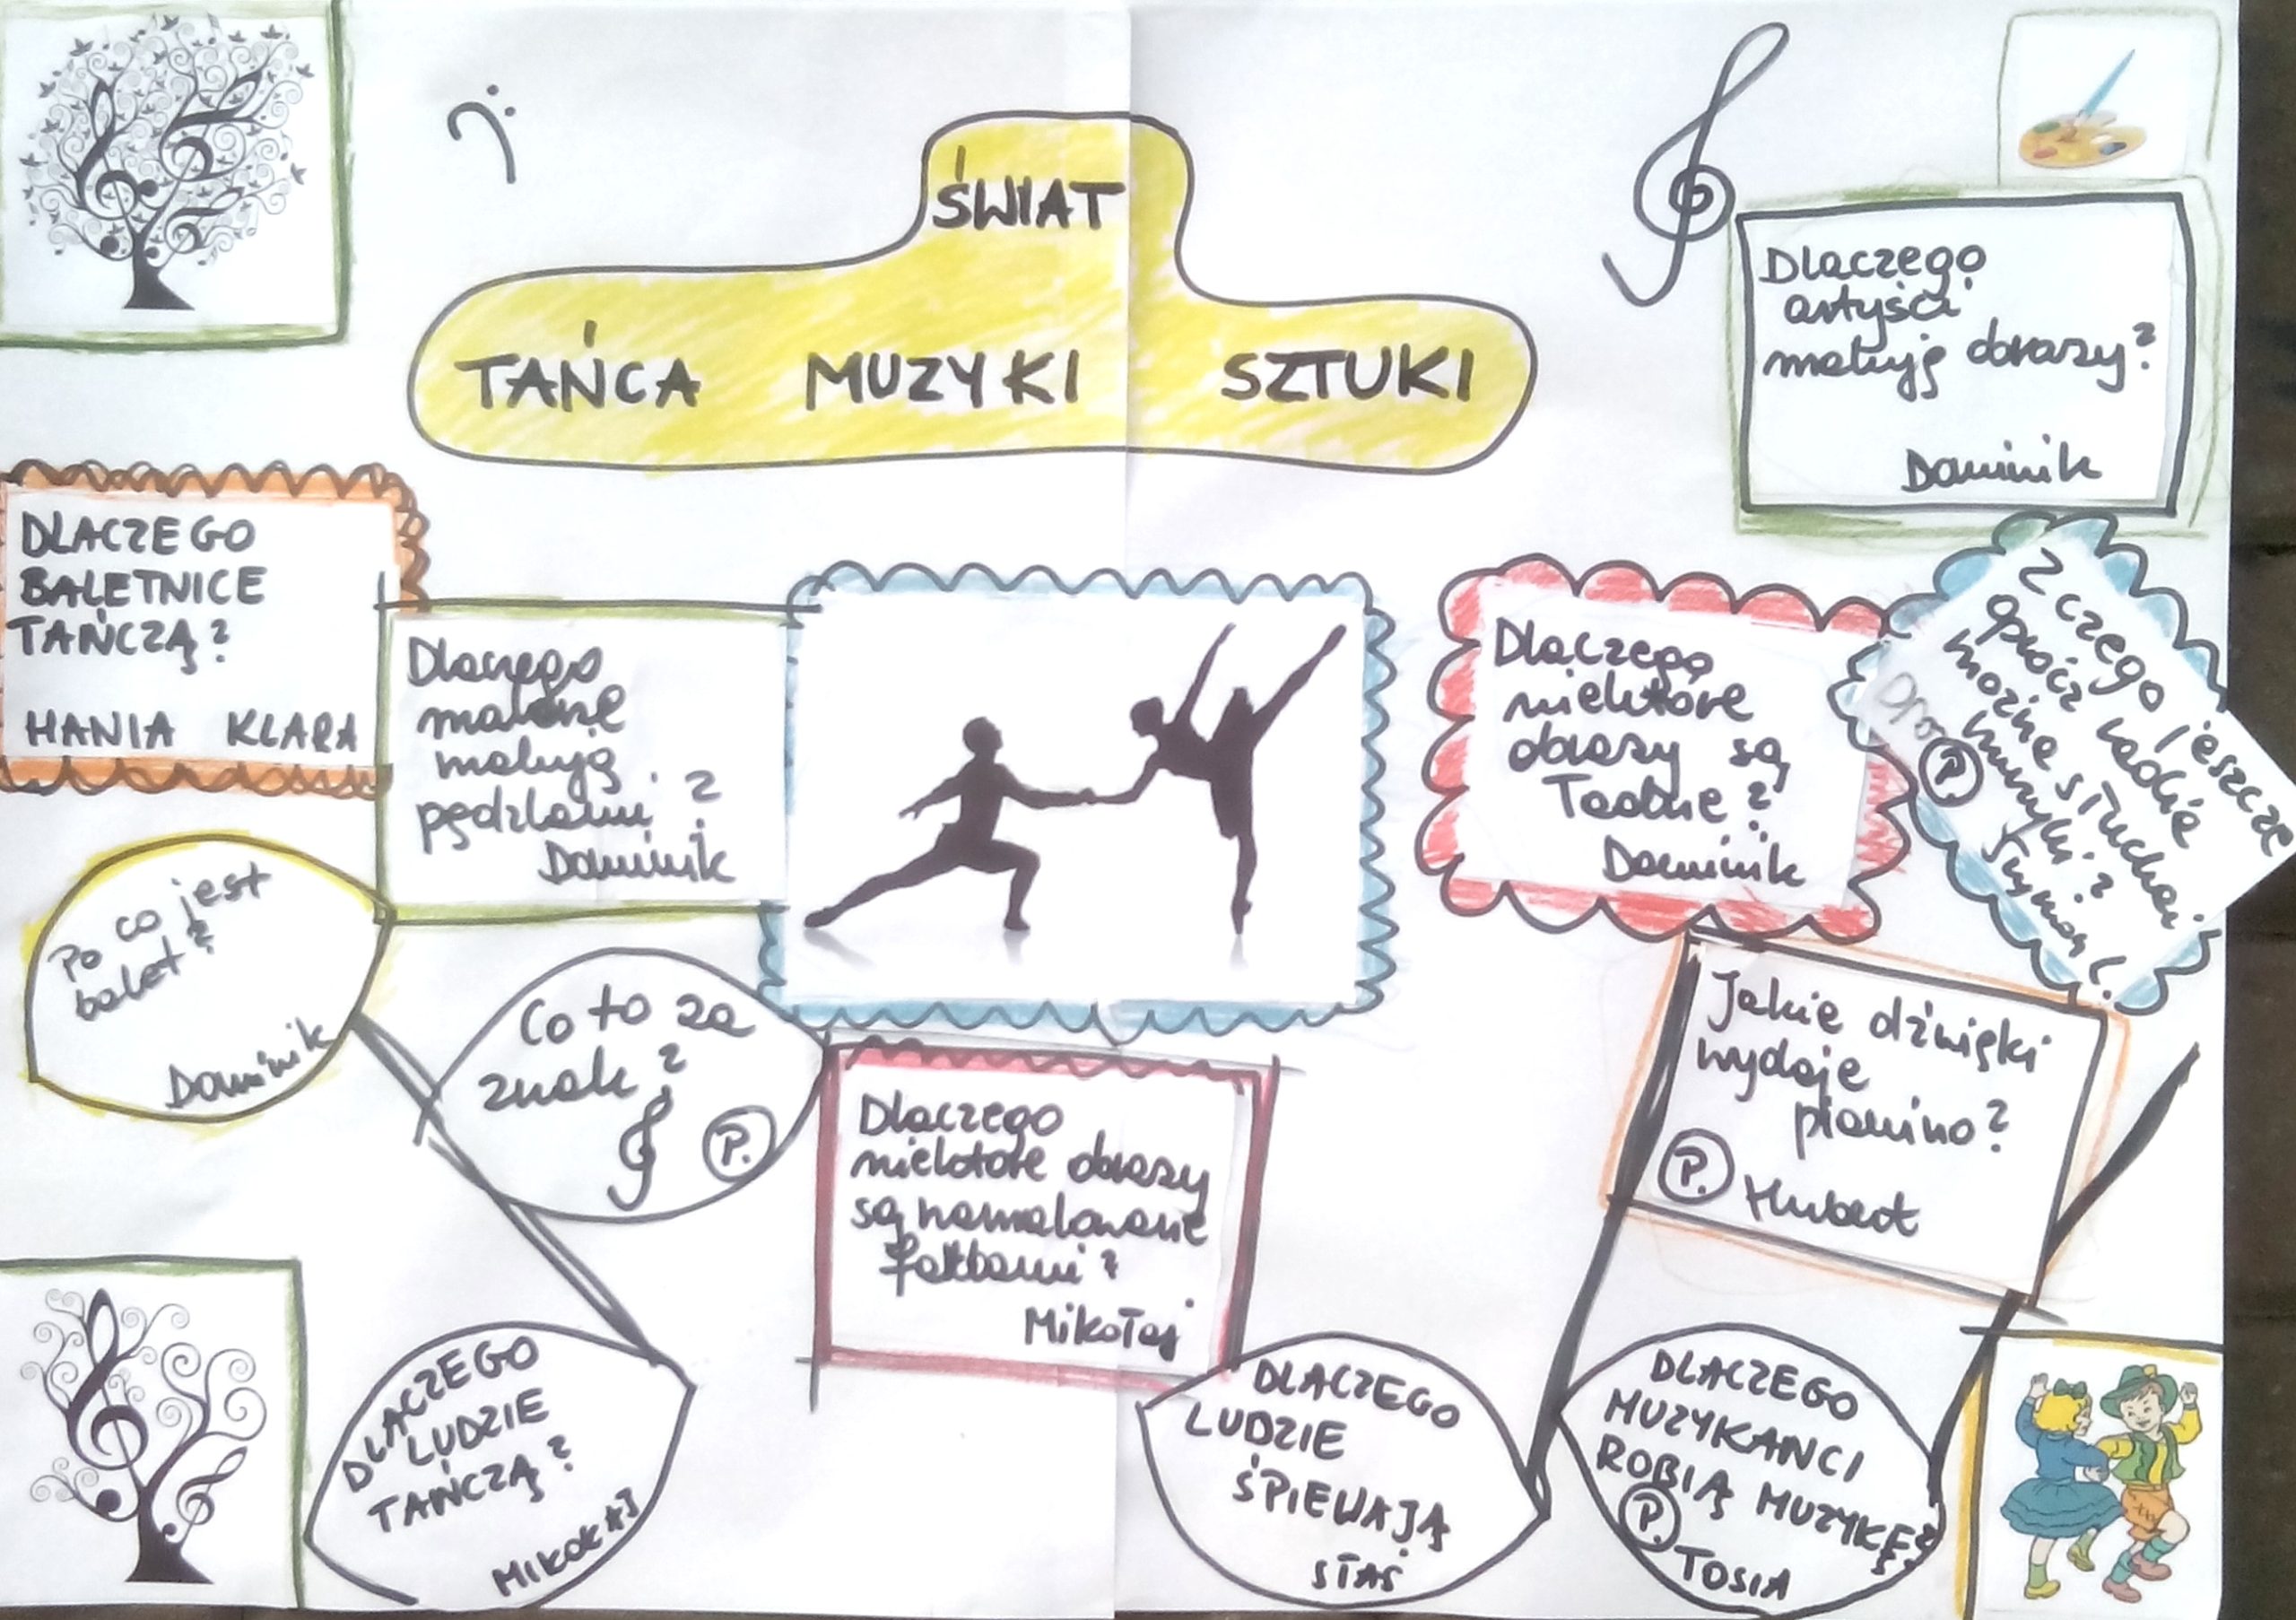 ŚWIAT
TAŃCA MUZYKI SZTUKI
Dlaczego
artyści
malują obrazy?
Dominik
DLACZEGO
BALETNICE
TAŃCZĄ?
HANIA KLARA
Dlaczego
malarze
malują
pędzlami?
Dominik
Dlaczego
niektóre
obrazy są
ładne?
Dominik
Z czego jeszcze
oprócz radia
można słuchać
muzyki?
P.
Szymon
Po co jest
balet?
Dominik
Co to za
znak?
P.
Dlaczego
niektóre obrazy
są namalowane
farbami?
Mikołaj
Jakie dźwięki
wydaje
pianino?
P. Hubert
DLACZEGO
LUDZIE
TAŃCZĄ?
MIKOŁAJ
DLACZEGO
LUDZIE
ŚPIEWAJĄ
STAŚ
DLACZEGO
MUZYKANCI
ROBIĄ MUZYKĘ?
P. TOSIA